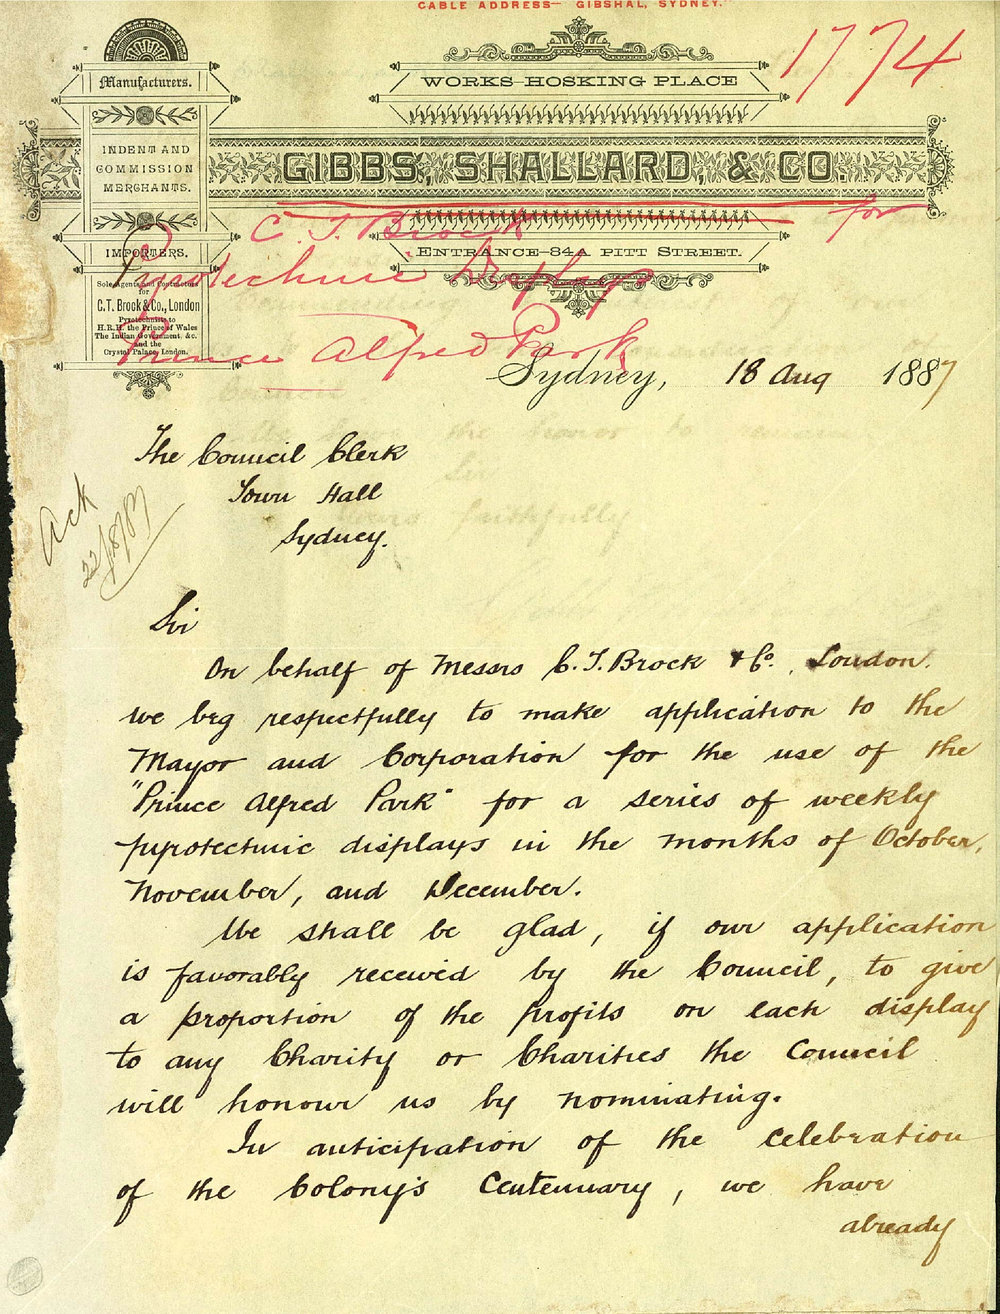 CABLE ADDRESS— GIBSHAL, SYDNEY.
1774
Manufacturers.
WORKS-HOSKING PLACE
INDENT AND
COMMISSION
MERCHANTS.
GIBBS, SHALLARD, & CO.
IMPORTERS.
ENTRANCE-84A PITT STREET.
Sole Agents and Contractors
for
C.T. Brock & Co., London
Pyrotechnists to
H.R.H. the Prince of Wales
The Indian Government, &c.
and the
Crystal Palace, London.
C. T. Brock for
Pyrotechnic Displays
Prince Alfred Park
Sydney, 18 Aug 1887
The Council Clerk
Town Hall
Sydney.
Ack
22/8/87
Sir
On behalf of Messrs C. T. Brock & Co., London.
we beg respectfully to make application to the
Mayor and Corporation for the use of the
"Prince Alfred Park" for a series of weekly
pyrotechnic displays in the months of October,
November, and December.
We shall be glad, if our application
is favorably received by the Council, to give
a proportion of the profits on each display
to any Charity or Charities the Council
will honour us by nominating.
In anticipation of the celebration
of the Colony's Centennary, we have
already